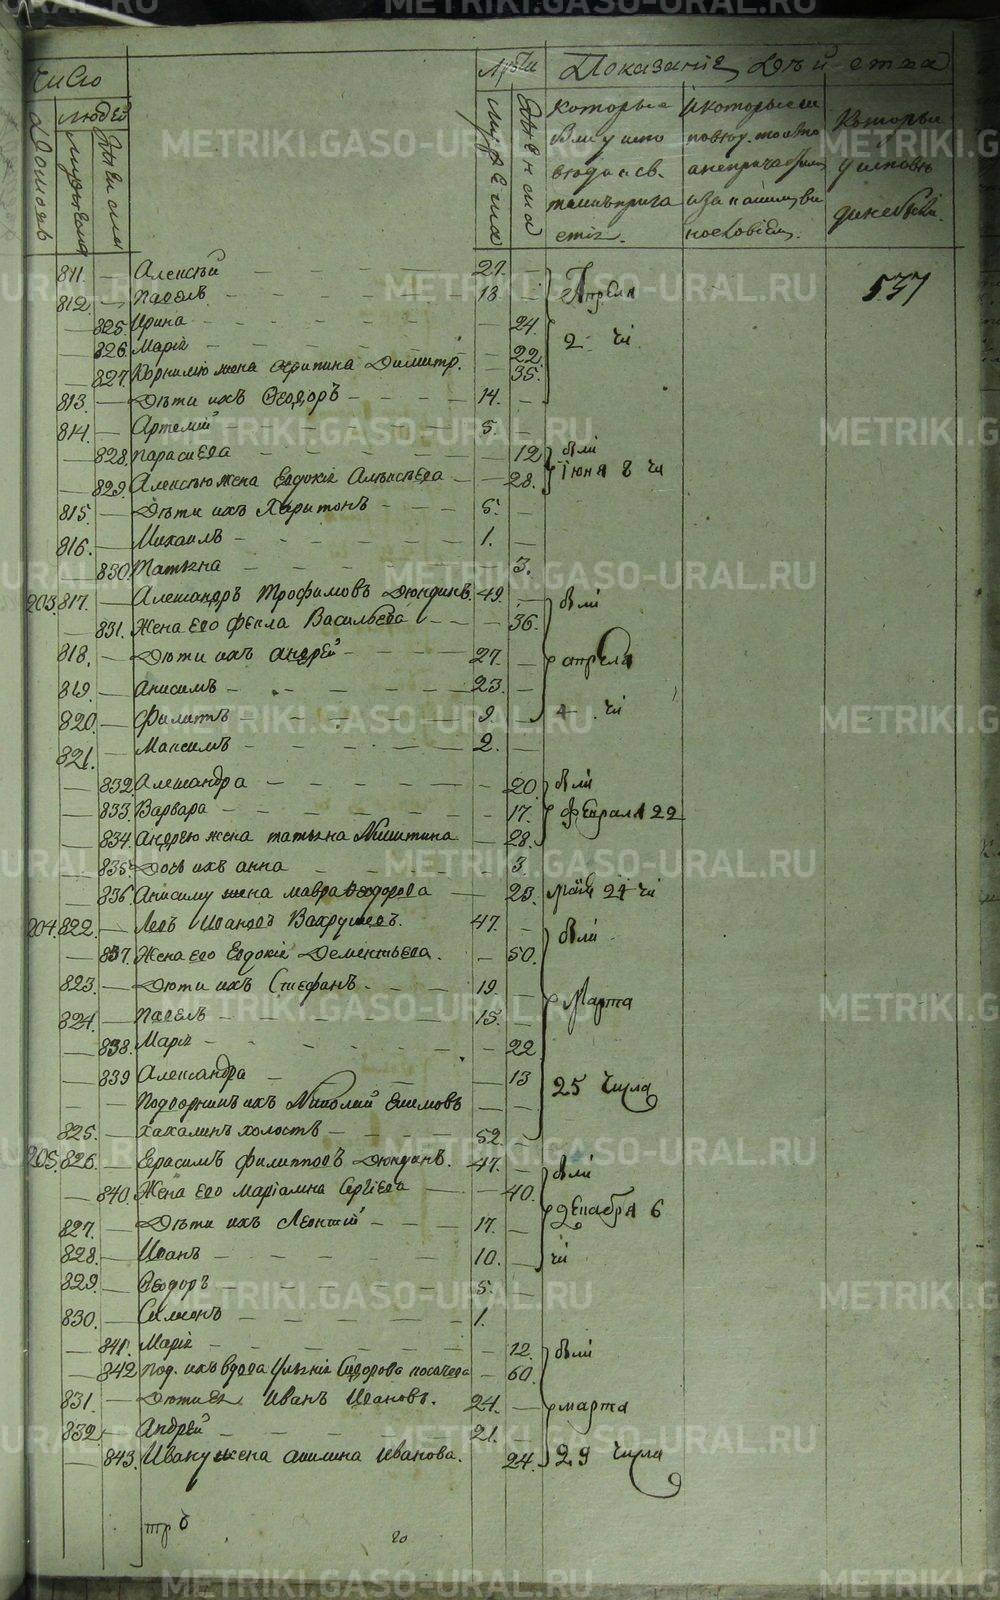 Число
Лѣта
Показаніе Дѣйства
Домовъ
людей
мужеска
женска
мужеска
женска
которые
были у испо
вѣди и св.
таинъ прича
стія.
Которые
у исповѣ
ди не были.
811. — Алексѣй — 27. —
812. — Павелъ — 18 — Апреля
537
— 825. Ирина — 24.
— 826. Марія — 22. 2 чи.
— 827. Корнилію жена Агрипина Димитр. — 35.
813. — Дѣти ихъ Ѳеодоръ — 14. —
814. — Артемій — 5. —
— 828. Параскева — 12 были
— 829. Алексѣю жена Евдокія Алексѣева — 28. Іюня 8 чи
815. — Дѣти ихъ Харитонъ — 5. —
816. — Михаилъ — 1. —
— 830. Татьяна — 3.
203. 817. — Александръ Трофимовъ Дюндинъ. 49. — были
— 831. Жена его Ѳекла Васильева — 36.
818. — Дѣти ихъ Андрей — 27. — апреля
819. — Анисимъ — 23. —
820. — Филиппъ — 9. — 4 чи
821. — Максимъ — 2. —
— 832. Александра — 20. были
— 833. Варвара — 17. Февраля 22
— 834. Андрею жена Татьяна Никитина — 28.
— 835. Дочь ихъ Анна — 3.
— 836. Анисиму жена Мавра Ѳеодорова — 23. Маія 24 чи
204. 822. — Левъ Ивановъ Вахрушевъ. 47. — были
— 837. Жена его Евдокія Дементьева. — 50.
823. — Дѣти ихъ Стефанъ — 19. — Марта
824. — Павелъ — 15. —
— 838. Марія — 22
— 839 Александра — 13 25 Числа
— — Подворникъ ихъ Николай Екимовъ — —
825. — Хахалинъ холостъ — 52. —
205. 826. — Герасимъ Филипповъ Дюндинъ. 47. — были
— 840. Жена его Маріамна Сергіева — 40. Декабря 6
827. — Дѣти ихъ Леонтій — 17. —
828. — Иванъ — 10. — чи
829. — Ѳеодоръ — 5. —
830. — Симеонъ — 1.
— 841. Марія — 12. были
— 842 Под. ихъ вдова Ульянія Сидорова — 60.
831. — Дѣти ея Иванъ Ивановъ. 24. — марта
832. — Андрей — 21.
— 843. Ивану жена Акилина Иванова. 24. 29 Числа
METRIKI.GASO-URAL.RU